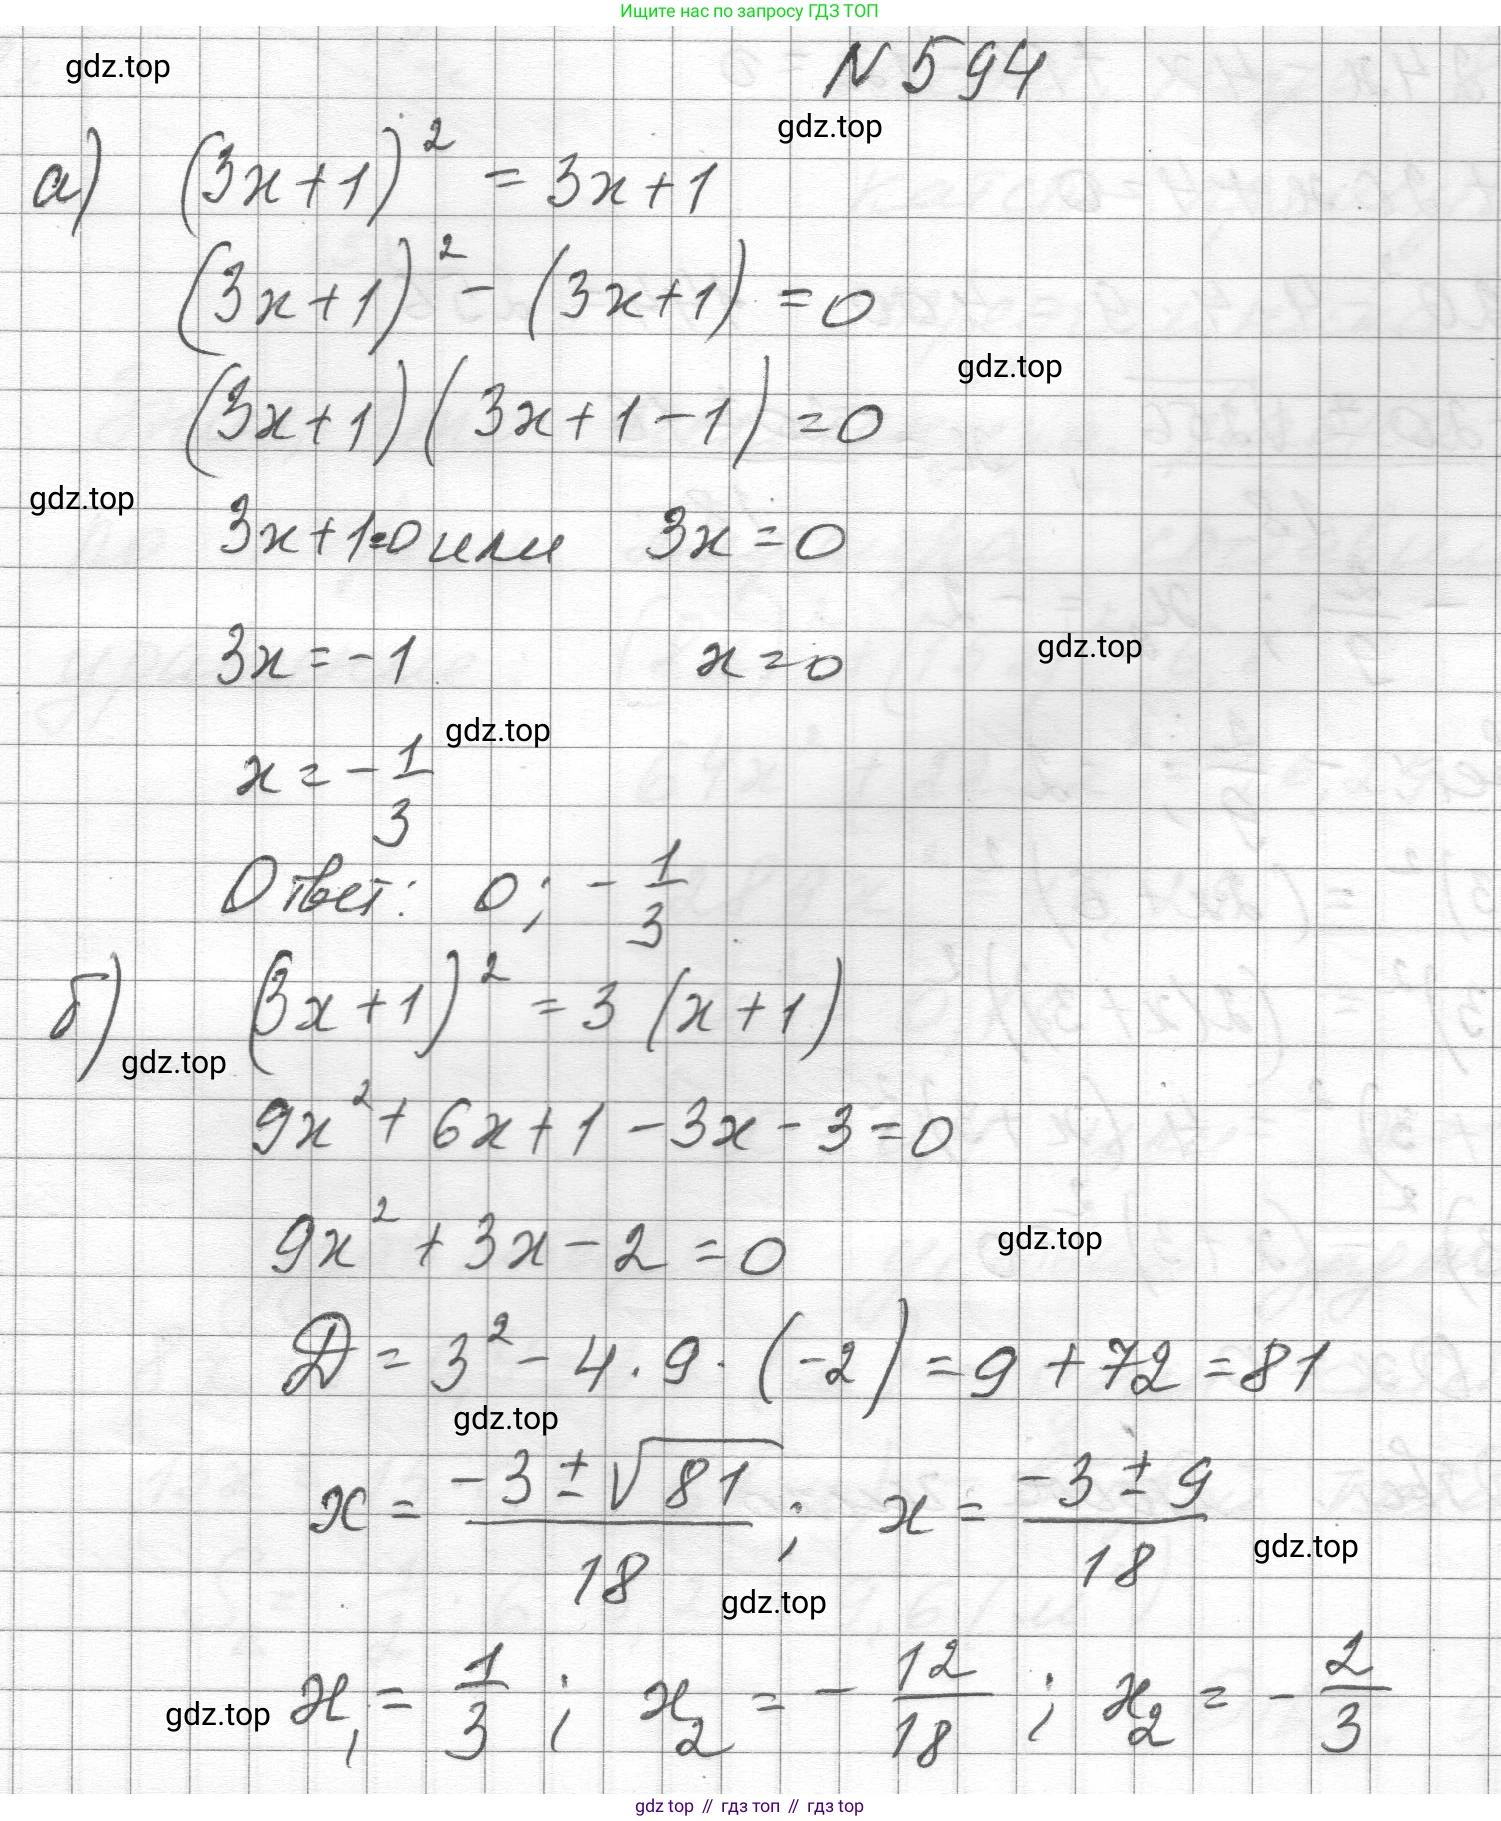 Ищите нас по запросу ГДЗ ТОП
N 594
gdz.top
gdz.top
а) (3x+1)² = 3x+1
(3x+1)² - (3x+1) = 0
gdz.top
(3x+1)(3x+1-1) = 0
gdz.top
3x+1=0 или 3x=0
3x=-1 x=0
gdz.top
gdz.top
x = -1/3
Ответ: 0; -1/3
б) (3x+1)² = 3(x+1)
gdz.top
9x² + 6x + 1 - 3x - 3 = 0
9x² + 3x - 2 = 0
gdz.top
D = 3² - 4·9·(-2) = 9 + 72 = 81
gdz.top
x = (-3 ± √81)/18 ; x = (-3 ± 9)/18
gdz.top
gdz.top
x₁ = 1/3 ; x₂ = -12/18 ; x₂ = -2/3
gdz.top
gdz top // гдз топ // гдз top